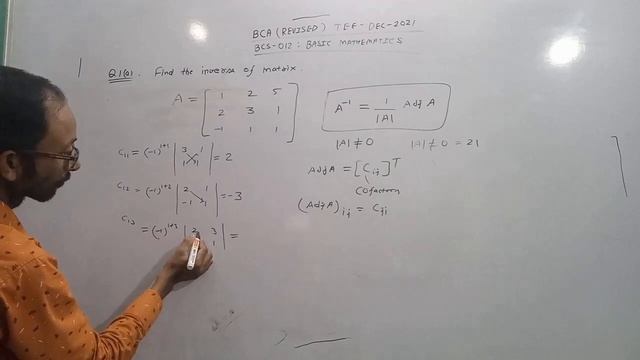 BCA (REVISED) TEE-DEC-2021
BCS-012: BASIC MATHEMATICS
Q1(a). Find the inverse of matrix.
A = [ 1 2 5
2 3 1
-1 1 1 ]
A⁻¹ = 1/|A| Adj A
|A| ≠ 0 |A| ≠ 0 = 21
C₁₁ = (-1)¹⁺¹ | 3 1
1 1 | = 2
Adj A = [Cᵢⱼ]ᵀ
Cofactors
C₁₂ = (-1)¹⁺² | 2 1
-1 1 | = -3
(Adj A)ᵢⱼ = Cⱼᵢ
C₁₃ = (-1)¹⁺³ | 2 3
1 | =